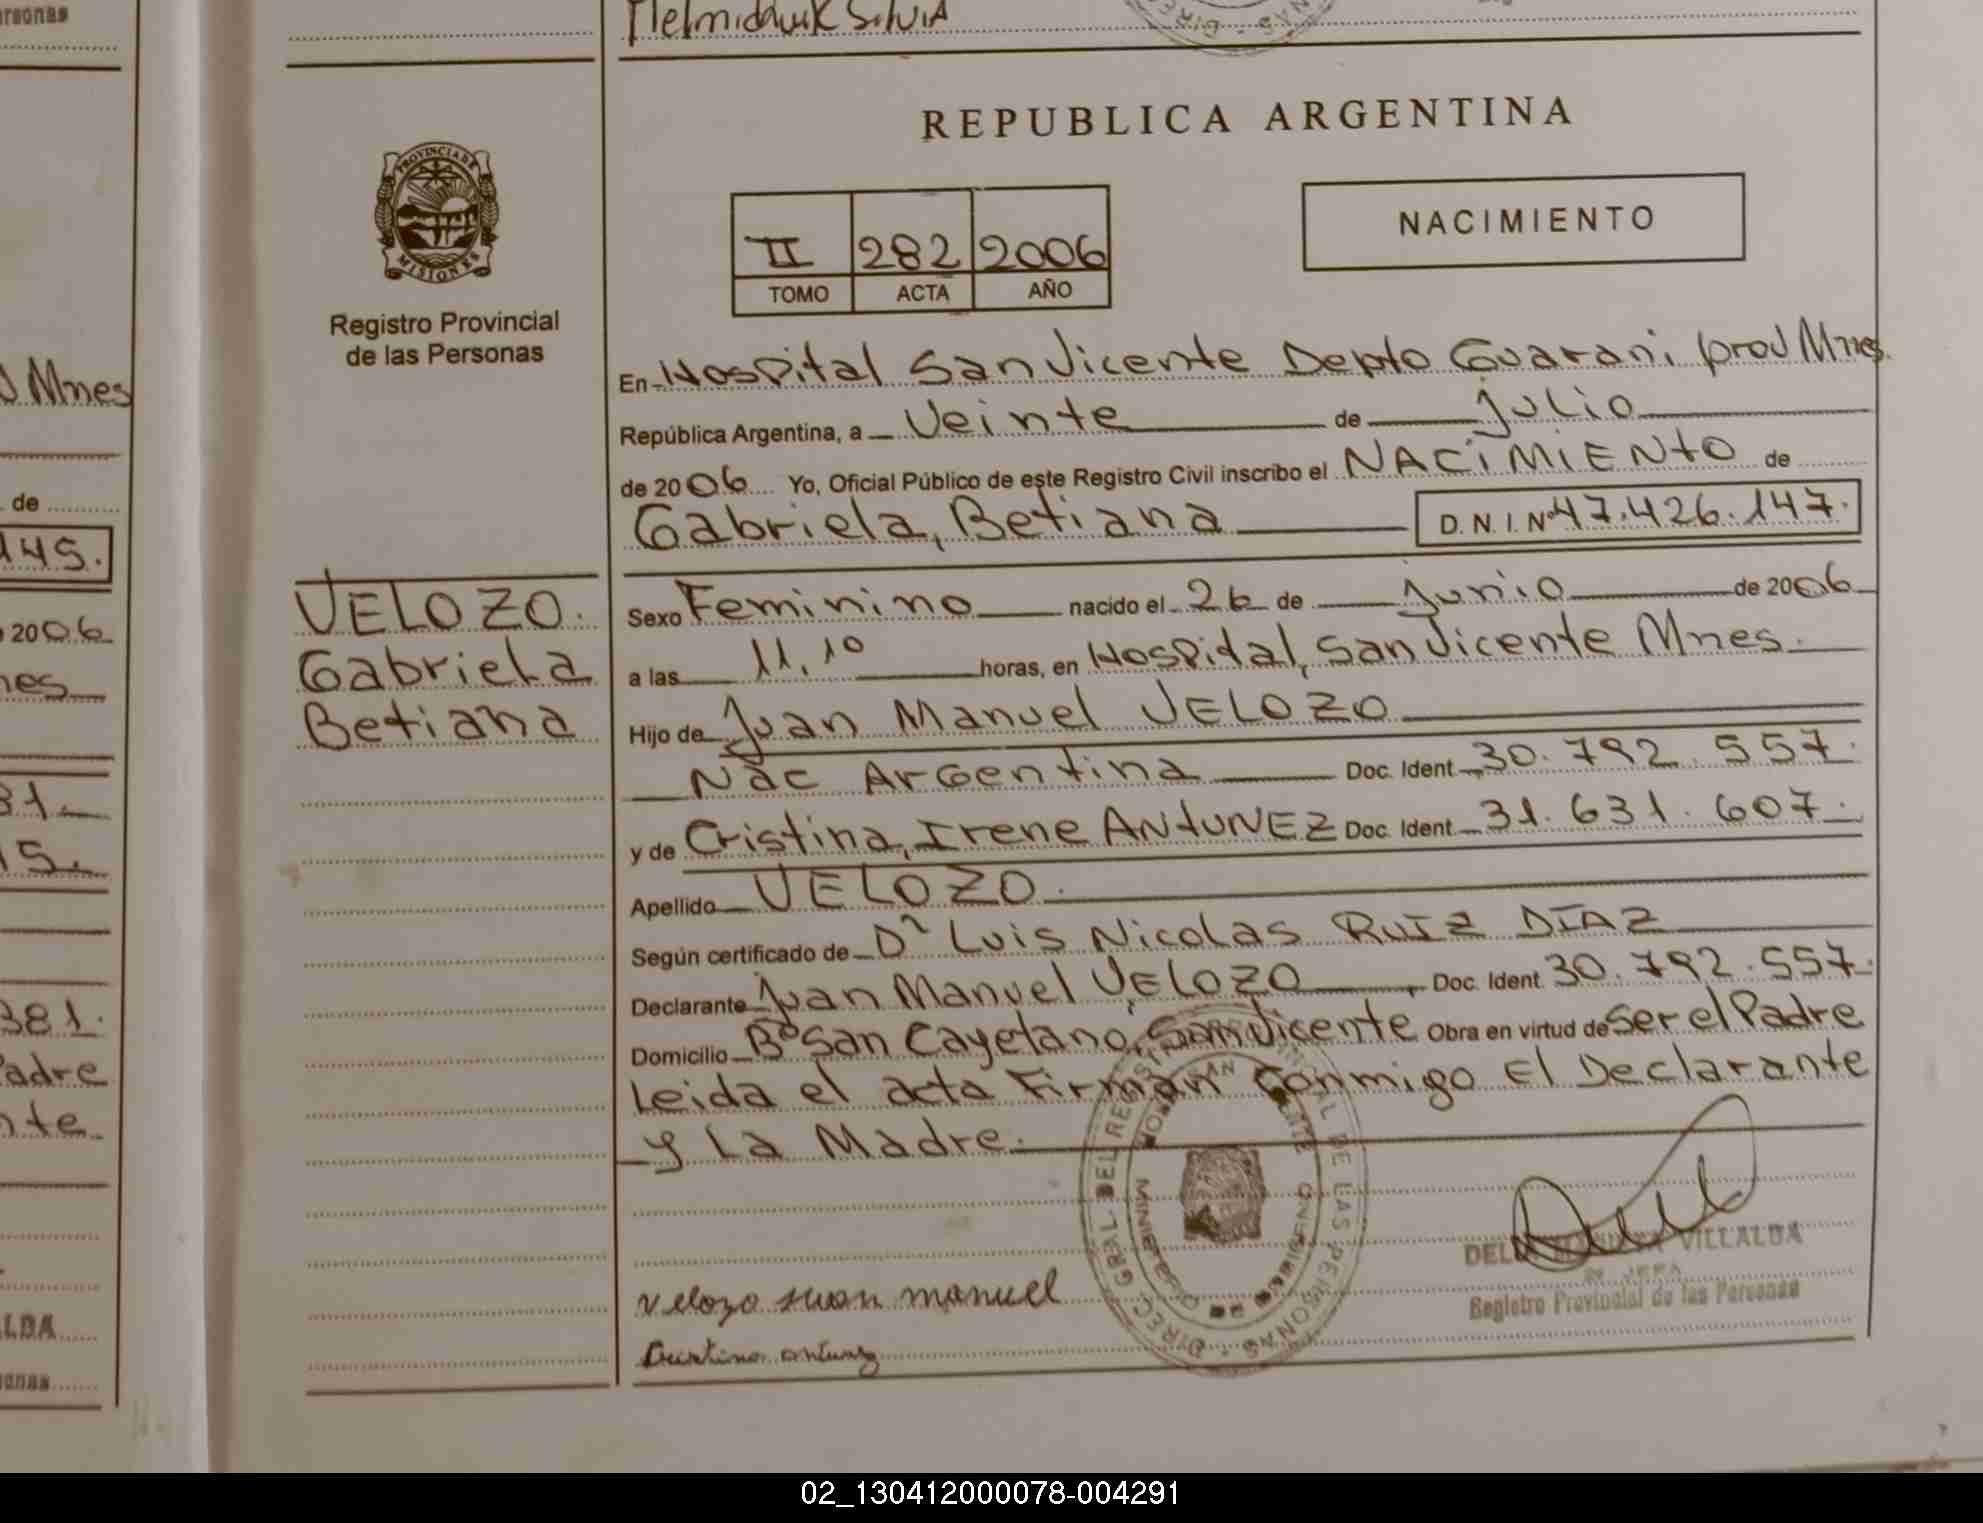 ersonas
J Mnes
de
145.
2006
nes
31.
15.
381.
Padre
nte
LDA
onas
Melmidauk Silvia
REPUBLICA ARGENTINA
PROVINCIA DE
MISIONES
Registro Provincial
de las Personas
II 282 2006
TOMO ACTA AÑO
NACIMIENTO
En Hospital San Vicente Depto Guarani prov Mnes.
República Argentina, a Veinte de julio
de 2006 Yo, Oficial Público de este Registro Civil inscribo el NACIMIENTO de
Gabriela, Betiana D.N.I. Nº 47.426.147.
VELOZO.
Gabriela
Betiana
Sexo Feminino nacido el 26 de junio de 2006
a las 11.10 horas, en Hospital, San Vicente Mnes.
Hijo de Juan Manuel VELOZO
Nac Argentina Doc. Ident 30.792.557.
y de Cristina, Irene ANTUNEZ Doc. Ident 31.631.607.
Apellido VELOZO.
Según certificado de Dr Luis Nicolas RUIZ DIAZ
Declarante Juan Manuel VELOZO, Doc. Ident 30.792.557.
Domicilio Bº San Cayetano, San Vicente Obra en virtud de Ser el Padre
Leida el acta Firman Conmigo El Declarante
y La Madre.
DIREC. GRAL. DEL REGISTRO PROVINCIAL DE LAS PERSONAS
VILLALBA
JEFA
Registro Provincial de las Personas
Velozo Juan manuel
Cristina antunez
02_130412000078-004291